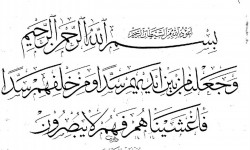 اعوذ بالله من الشيطان الرجيم
بسم الله الرحمن الرحيم
وجعلنا من بين ايديهم سدا ومن خلفهم سدا
فاغشيناهم فهم لا يبصرون